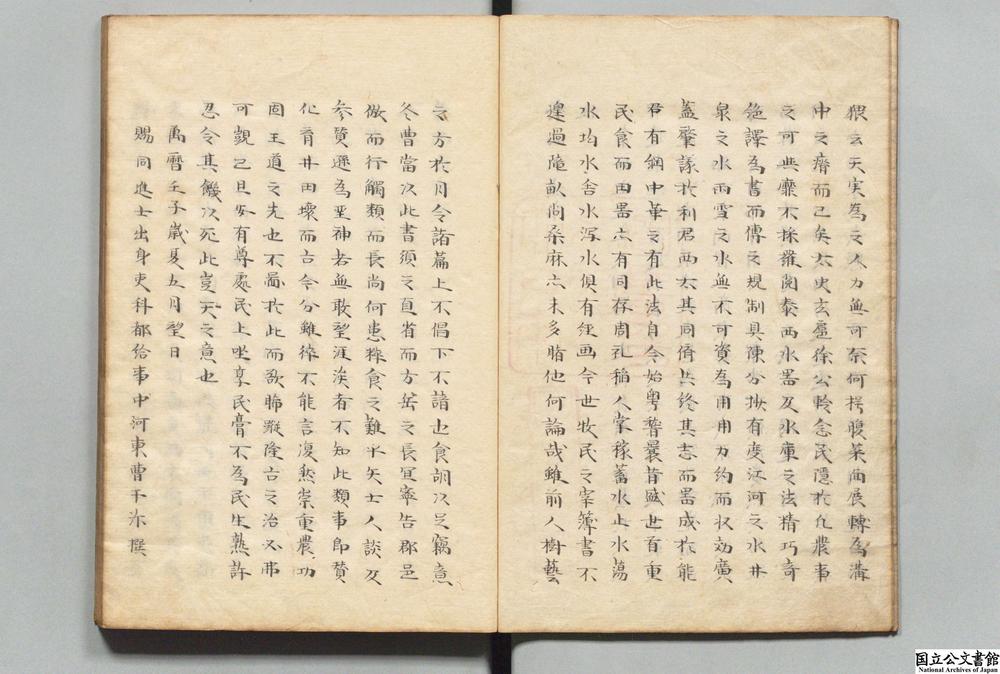 猥云天実為之人力無可奈何枵腹菜面展轉為溝
中之瘠而已矣太史玄扈徐公軫念民隱於凢農事
之可興靡不採羅閱泰西水器及水庫之法精巧奇
絶譯為書而傳之規制具陳分抄有度江河之水井
泉之水雨雪之水無不可資為用用力約而收効廣
蓋肇議於利君西太其同儕共終其志而器成於熊
君有綱中華之有此法自今始粤暬曩昔盛世首重
民食而田器亦有同存周礼稲人掌稼蓄水止水蕩
水均水舎水瀉水俱有経画今世牧民之宰簿書不
遑過隴畝问桑麻亦未多睹他何論哉雖前人樹藝
之方於月令諸篇上不倡下不諳也食訓以足竊意
冬曹當以此書須之直省而方岳之長宜寧告郡邑
倣而行觸類而長尚何患稼食之難乎矣士人談及
参賛遜為聖神若無敢望涯涘者不知此類事即賛
化育井田壊而古今分雖稼不能言復㷛崇重農功
固王道之先也不啚於此而歆睎蹤隆古之治又弗
可觀已且安有尊處民上坐享民膏不為民生熟許
忍令其饑以死此豈天之意也
萬暦壬子歳夏五月望日
賜同進士出身吏科都給事中河東曹于汴撰
国立公文書館
National Archives of Japan